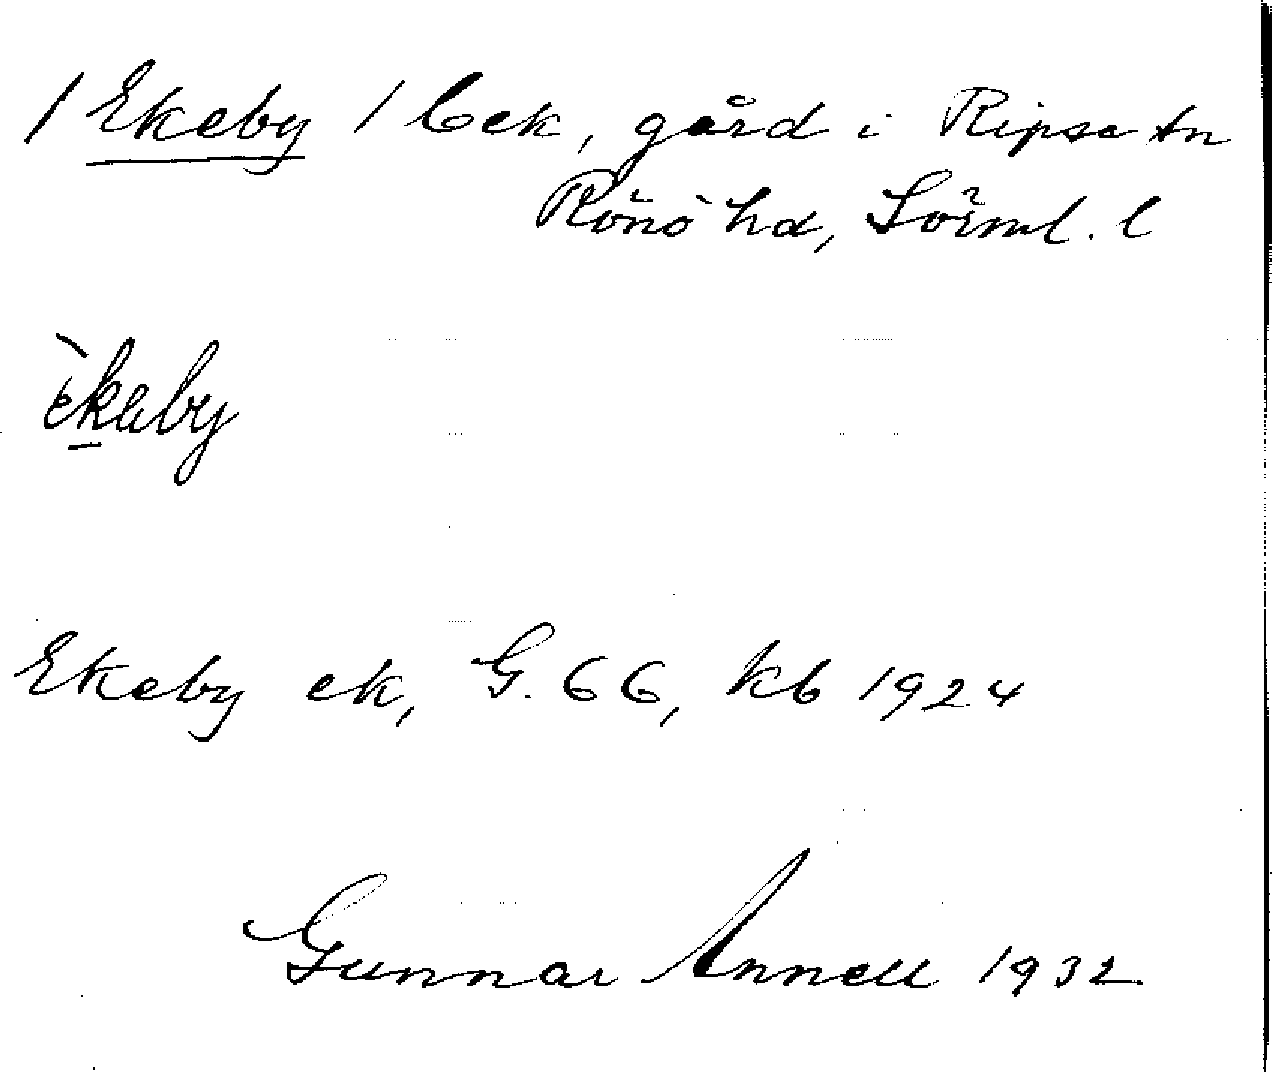 / Ekeby / 6 ek, gård i Ripsa sn
Rönö hd, Sörml. l
èkeby
Ekeby ek, G. 66, kb 1924
Gunnar Annell 1932